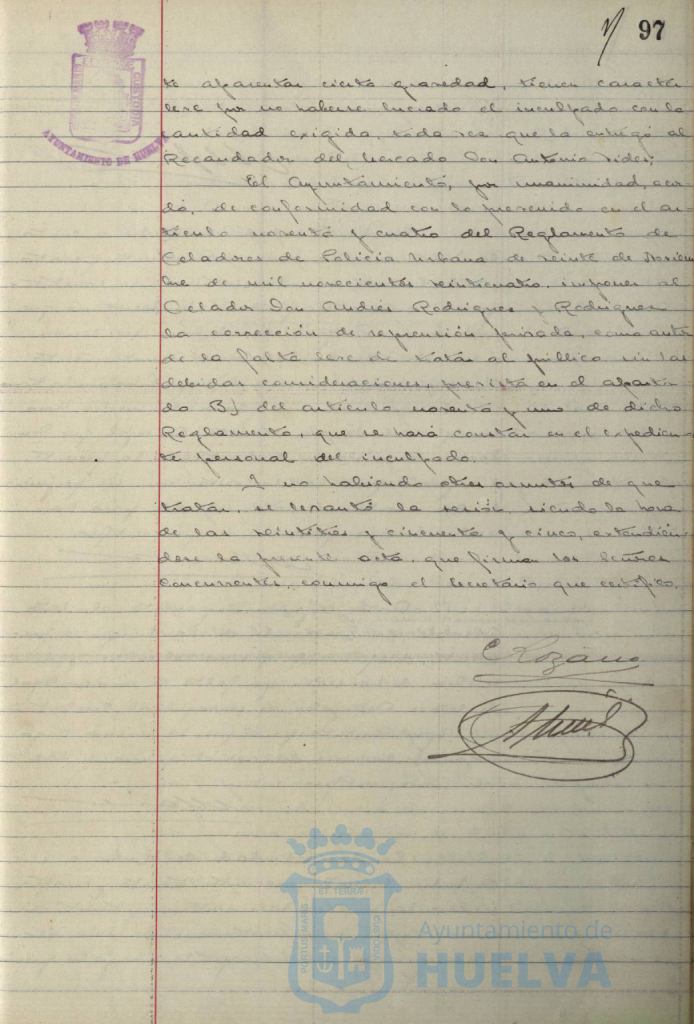 97
te aparentar cierta gravedad, tienen carácter
leve por no haberse lucrado el inculpado con la
cantidad exigida, toda vez que la entregó al
Recaudador del Mercado Don Antonio
El Ayuntamiento, por unanimidad, acor-
dó, de conformidad con lo prevenido en el ar-
tículo noventa y cuatro del Reglamento de
Celadores de Policía Urbana de veinte de Noviem-
bre de mil novecientos veinticuatro, imponer al
Celador Don Andrés Rodríguez y Rodríguez
la corrección de reprensión privada, como autor
de la falta leve de tratar al público sin las
debidas consideraciones, prevista en el aparta-
do B) del artículo noventa y uno de dicho
Reglamento, que se hará constar en el expedien-
te personal del inculpado.
Y no habiendo otros asuntos de que
tratar, se levantó la sesión, siendo la hora
de las veintitrés y cincuenta y cinco, extendién-
dose la presente acta, que firman los Señores
Concurrentes, conmigo el Secretario que certifico.
Lozano
AYUNTAMIENTO DE HUELVA
PORTUS MARIS
ET TERRAE
CUSTODIA
Ayuntamiento de
HUELVA